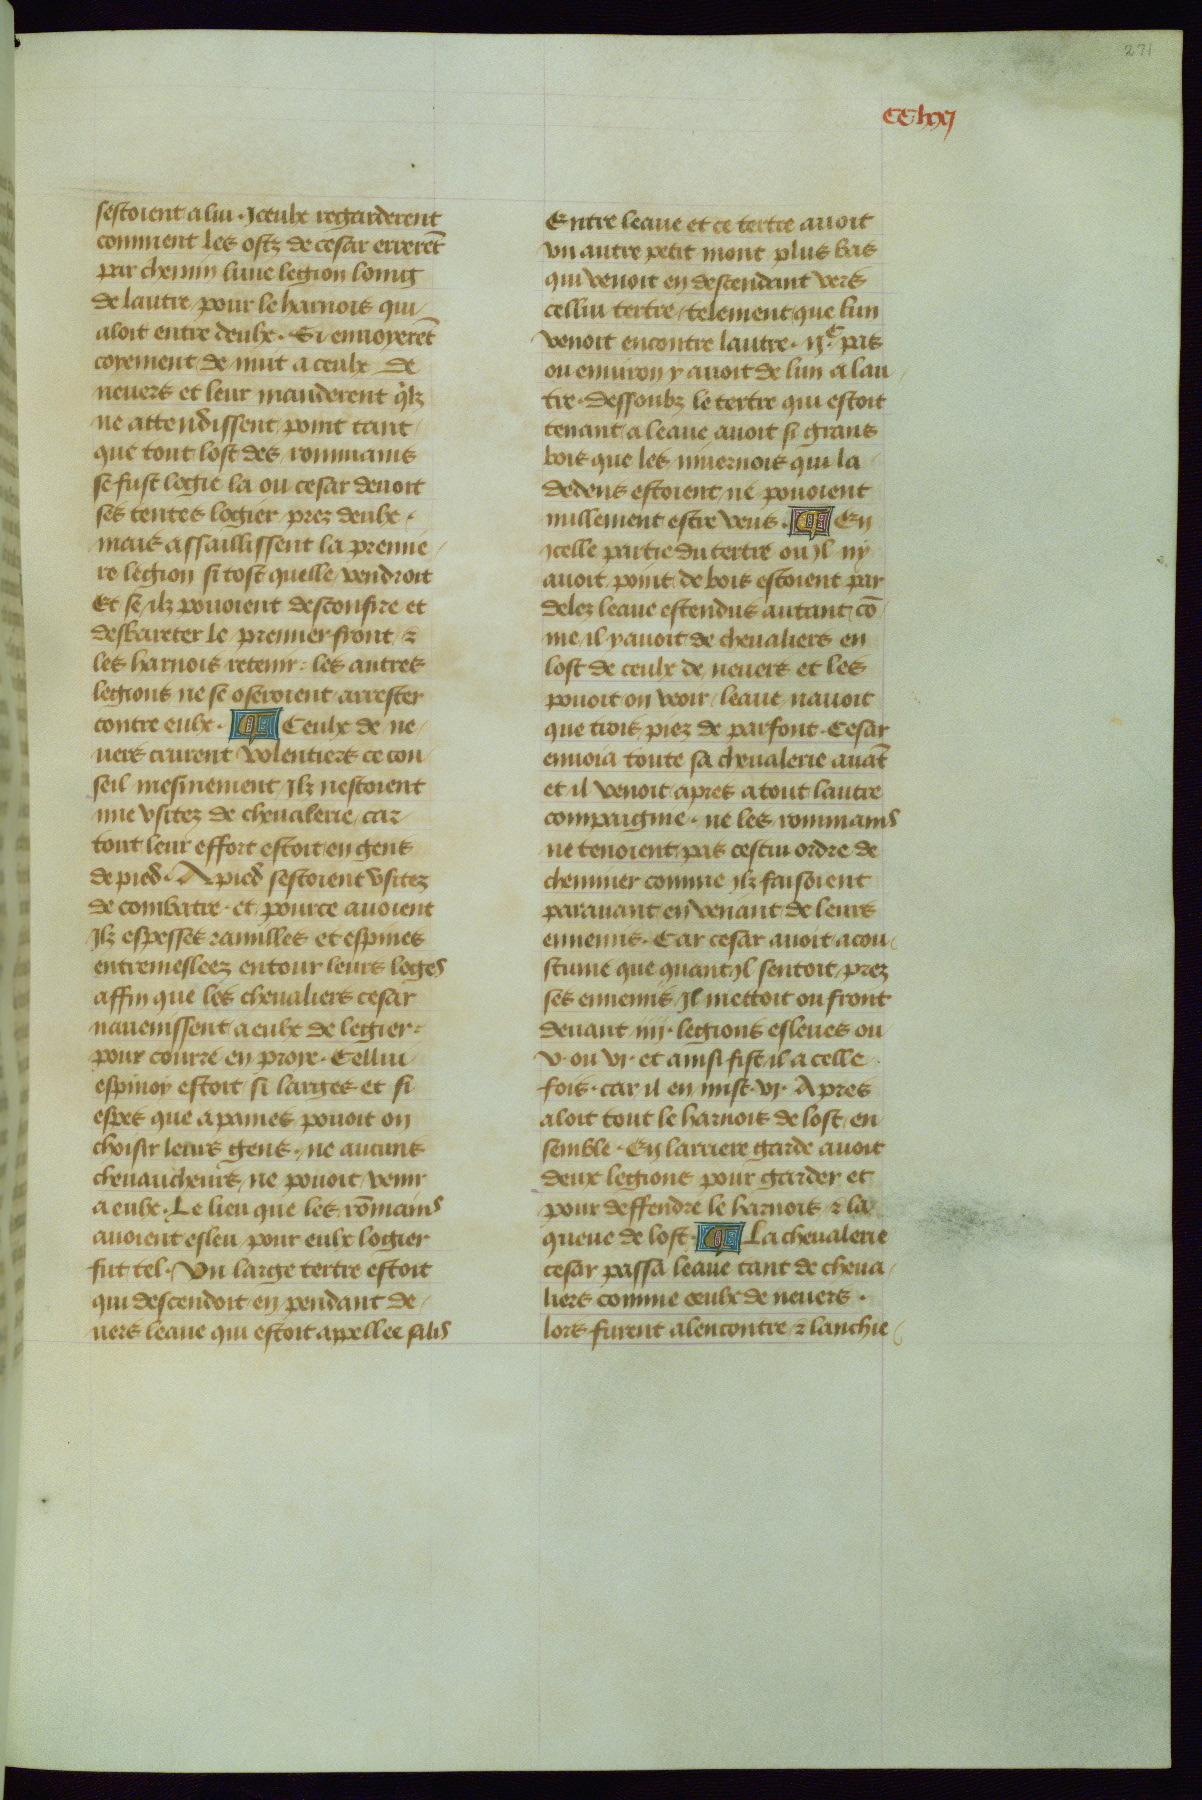 271
CClxxj
sestoient a lui · Iceulx regarderent
comment les ostz de cesar erreret̄
par chemin lune legion loing
de lautre / pour le harnois qui /
aloit entre deulx · Si enuoyeret̄
coyement de nuit a ceulx de
neuers et leur manderent q̄lz
ne attendissent point tant /
que tout lost des rommains
se fust logie la ou cesar deuoit
ses tentes logier prez deulx ·
mais assaillissent la premie /
re legion si tost quelle vendroit
Et se ilz pouoient desconfire et
desbareter le premier front / ⁊
les harnois retenir : les autres
legions ne se oseroient arrester
contre eulx · ¶ Ceulx de ne /
uers crurent volentiers ce con
seil mesmement Ilz nestoient
mie vsitez de cheualerie / car
tout leur effort estoit en gens
de pied · A pied sestoient vsitez
de combatre · et pource auoient
Ilz espesses ramilles et espines
entremesleez entour leurs loges
affin que les cheualiers cesar
nauenissent a eulx de legier :
pour courre en proye · Cellui
espinoy estoit si larges et si
espes que a paines pouoit on
choisir leurs gens / ne aucuns
cheuaucheurs ne pouoit venir
a eulx · Le lieu que les rōmains
auoient esleu pour eulx logier
fut tel · Vn large tertre estoit
qui descendoit en pendant de /
uers leaue qui estoit appellee salis
Entre leaue et ce tertre auoit
vn autre petit mont plus bas
qui venoit en descendant vers
cellui tertre / telement que lun
venoit encontre lautre · ij.ᶜ pas
ou enuiron y auoit de lun a lau /
tre · Dessoubz le tertre qui estoit
tenant a leaue auoit si grans
bois que les niuernois qui la
dedens estoient ne pouoient
nullement estre veus · ¶ En
Icelle partie du tertre ou Il ny
auoit point de bois estoient par
delez leaue estendus autant cō
me il y auoit de cheualiers en
lost de ceulx de neuers et les
pouoit on veoir / leaue nauoit
que trois piez de parfont · Cesar
enuoia toute sa cheualerie auāt
et il venoit apres a tout lautre
compaignie · ne les rommains
ne tenoient pas cestui ordre de
cheminer comme Ilz faisoient
parauant en venant de leurs
ennemis · Car cesar auoit acou /
stume que quant Il sentoit prez
ses ennemis / Il mettoit ou front
deuant iiij · legions esleues ou
v · ou vj · et ainsi fist il a celle
fois · car il en mist · vj · Apres
aloit tout le harnois de lost en
semble · En larriere garde auoit
deux legions pour garder et
pour deffendre le harnois ⁊ la
queue de lost · ¶ La cheualerie
cesar passa leaue tant de cheua /
liers comme ceulx de neuers ·
lors furent alencontre ⁊ lanchie /